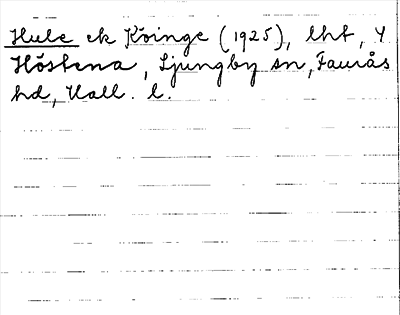 Hule ek Köinge (1925), lht, Y
Höstena, Ljungby sn, Faurås
hd, Hall. l.